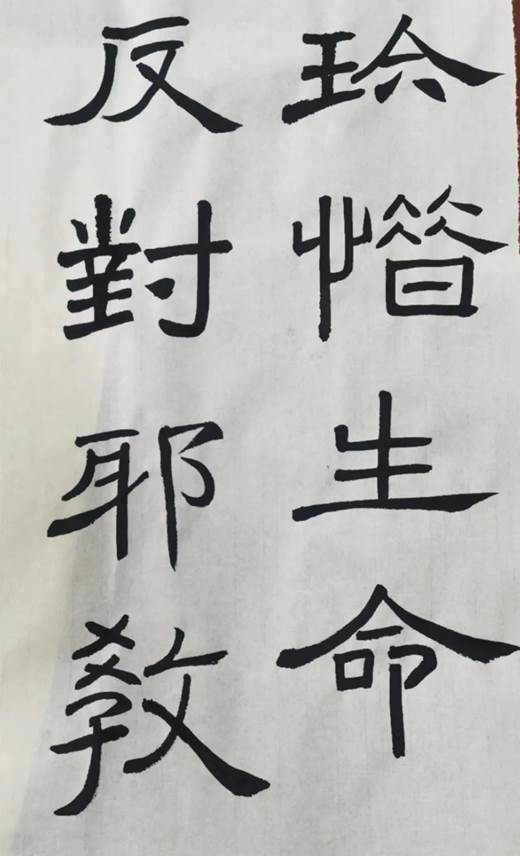 珍惜生命
反對邪教